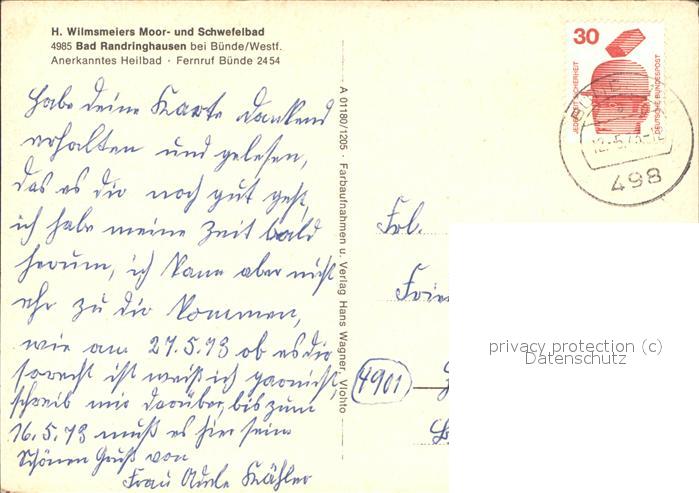 H. Wilmsmeiers Moor- und Schwefelbad
4985 Bad Randringhausen bei Bünde/Westf.
Anerkanntes Heilbad · Fernruf Bünde 2454
Habe deine Karte dankend
erhalten und gelesen,
das es dir noch gut geht,
ich habe meine Zeit bald
herum, ich kann aber nicht
ehr zu dir kommen,
wie am 27.5.73 ob es dir
so recht ist weiß ich garnicht,
schreib mir darüber, bis zum
16.5.73 muß es hier sein
Schönen Gruß von
Frau Adele Kähler
A 01180/1205 · Farbaufnahmen u. Verlag Hans Wagner, Vlotho
30
JEDERZEIT SICHERHEIT
DEUTSCHE BUNDESPOST
498
Frl.
Frie
4901
privacy protection (c)
Datenschutz